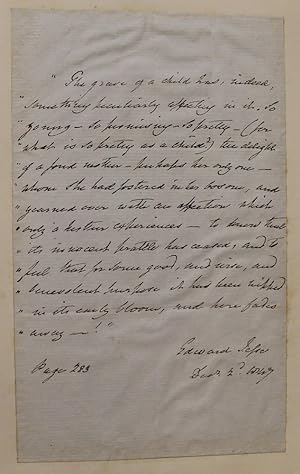 "The grave of a child has, indeed,
"something peculiarly affecting in it. So
"young — so promising — so pretty — (for
"what is so pretty as a child?) the delight
"of a fond mother — perhaps her only one —
"whom she had fostered in her bosom, and
"yearned over with an affection which
"only a mother experiences — to know that
"its innocent prattle has ceased, and to
"feel that for some good, and wise, and
"benevolent purpose it has been nipped
"in its early bloom, and here fades
"away — !"
Edward Jesse
Page 283
Decr. 2d. 1847